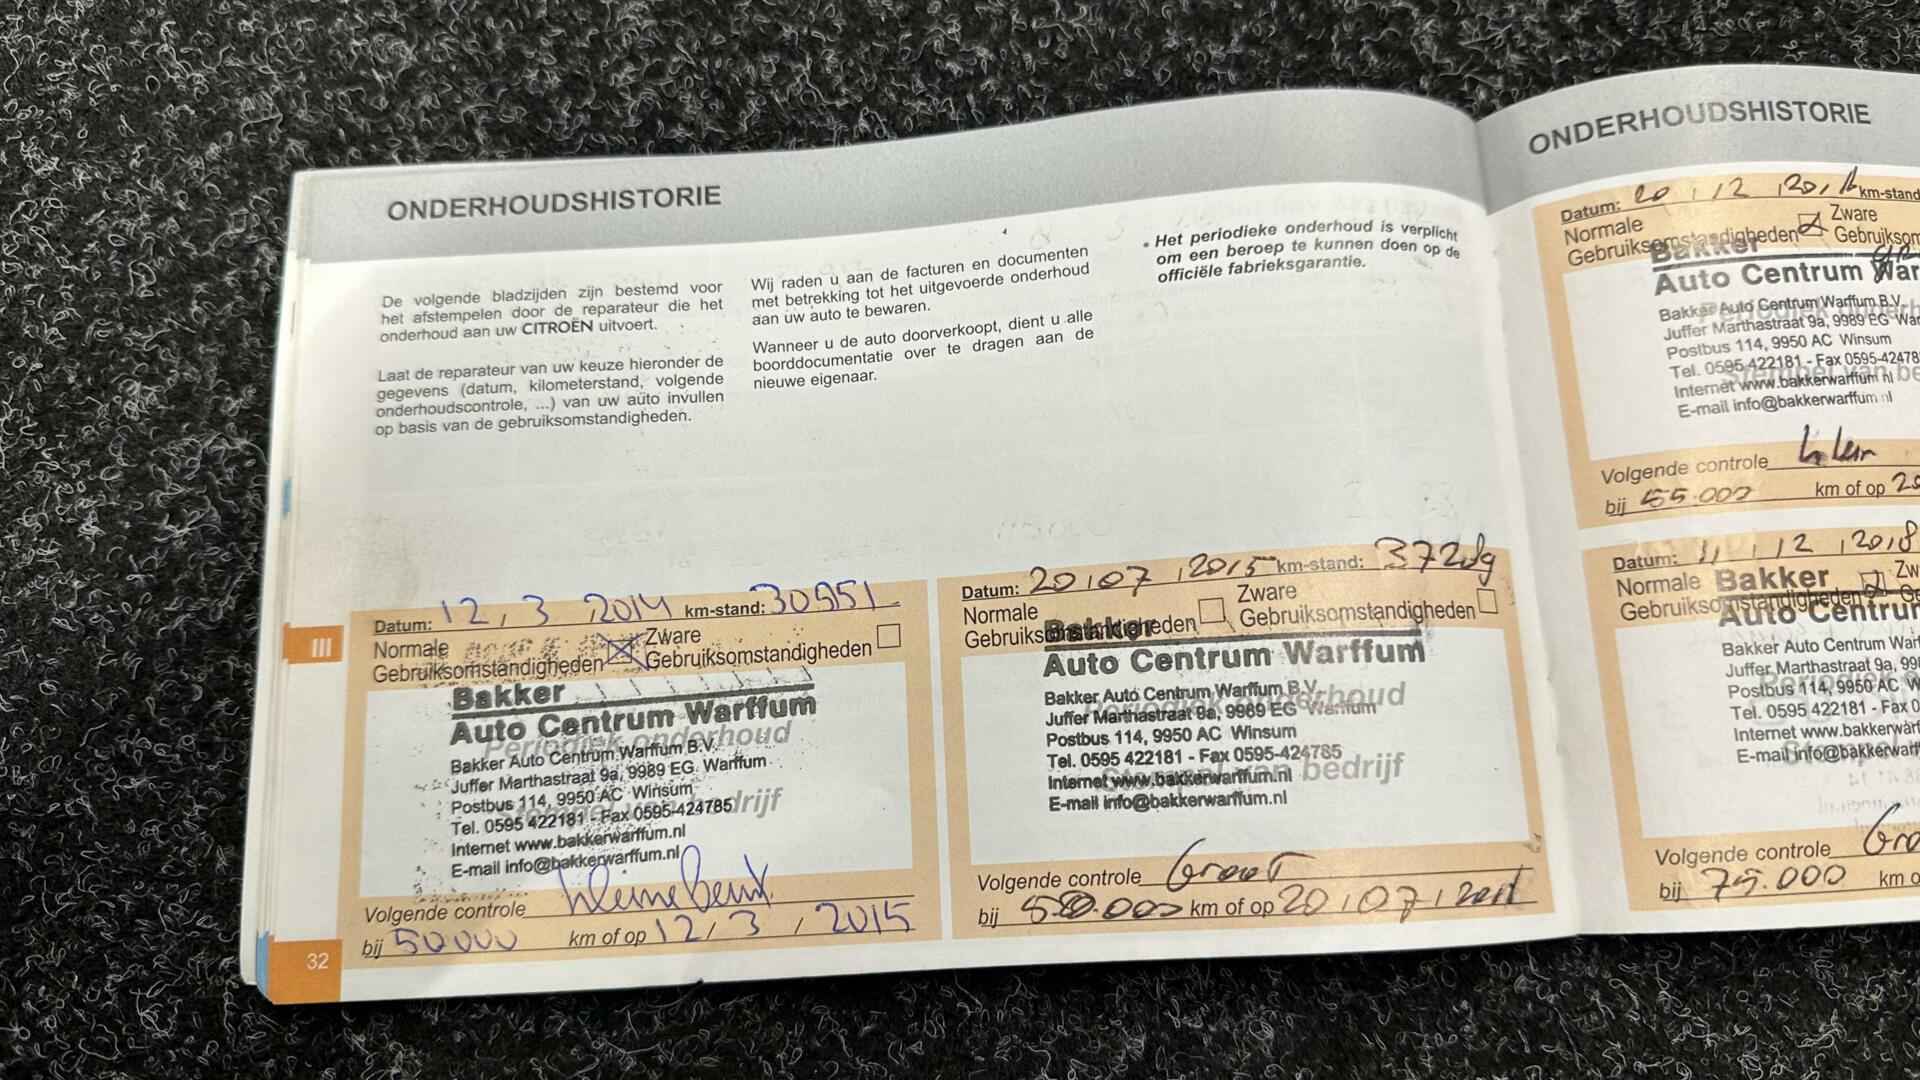 ONDERHOUDSHISTORIE
De volgende bladzijden zijn bestemd voor
het afstempelen door de reparateur die het
onderhoud aan uw CITROËN uitvoert.
Laat de reparateur van uw keuze hieronder de
gegevens (datum, kilometerstand, volgende
onderhoudscontrole, ...) van uw auto invullen
op basis van de gebruiksomstandigheden.
Wij raden u aan de facturen en documenten
met betrekking tot het uitgevoerde onderhoud
aan uw auto te bewaren.
Wanneer u de auto doorverkoopt, dient u alle
boorddocumentatie over te dragen aan de
nieuwe eigenaar.
• Het periodieke onderhoud is verplicht
om een beroep te kunnen doen op de
officiële fabrieksgarantie.
Datum: 12, 3, 2014 km-stand: 30951
Normale Zware
Gebruiksomstandigheden Gebruiksomstandigheden
Bakker
Auto Centrum Warffum
Periodiek onderhoud
Bakker Auto Centrum Warffum B.V.
Juffer Marthastraat 9a, 9989 EG Warffum
Postbus 114, 9950 AC Winsum
Tel. 0595 422181 - Fax 0595-424785
Internet www.bakkerwarffum.nl
E-mail info@bakkerwarffum.nl
Volgende controle kleine beurt
bij 50000 km of op 12, 3, 2015
III
32
Datum: 20, 07, 2015 km-stand:
Normale Zware
Gebruiksomstandigheden Gebruiksomstandigheden
Bakker
Auto Centrum Warffum
Bakker Auto Centrum Warffum B.V.
Periodiek onderhoud
Juffer Marthastraat 9a, 9989 EG Warffum
Postbus 114, 9950 AC Winsum
Tel. 0595 422181 - Fax 0595-424785
Stempel van bedrijf
Internet www.bakkerwarffum.nl
E-mail info@bakkerwarffum.nl
Volgende controle Groot
bij 50.000 km of op 20, 07,
ONDERHOUDSHISTORIE
Datum: 20, 12, km-stand
Normale Zware
Gebruiksomstandigheden Gebruiksom
Bakker
Auto Centrum War
Bakker Auto Centrum Warffum B.V.
Juffer Marthastraat 9a, 9989 EG War
Postbus 114, 9950 AC Winsum
Tel. 0595 422181 - Fax 0595-42478
Internet www.bakkerwarffum.nl
E-mail info@bakkerwarffum.nl
Volgende controle klein
bij 55.000 km of op 20
Datum: 11, 12, 2018
Normale Zw
Gebruiksomstandigheden Ge
Bakker
Auto Centrum
Bakker Auto Centrum War
Juffer Marthastraat 9a, 998
Postbus 114, 9950 AC W
Tel. 0595 422181 - Fax 0
Internet www.bakkerwarf
E-mail info@bakkerwarff
Volgende controle Gro
bij 75.000 km o